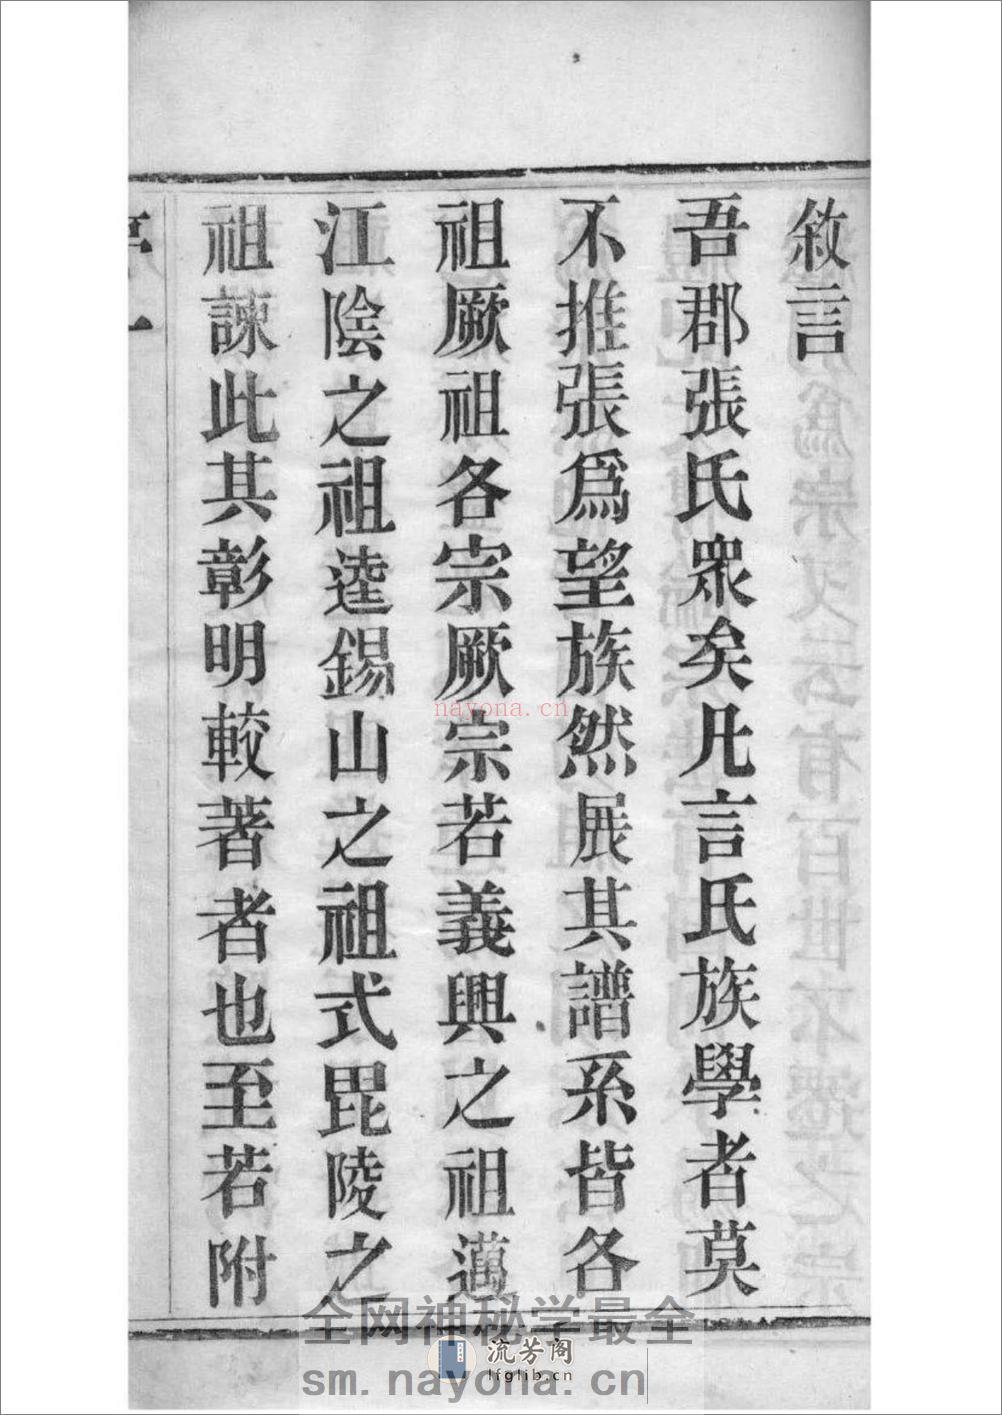 敘言
吾郡張氏眾矣凡言氏族學者莫
不推張爲望族然展其譜系皆各
祖厥祖各宗厥宗若義興之祖邁
江陰之祖逵錫山之祖式毘陵之
祖諫此其彰明較著者也至若附
序 一
nayona.cn
全网神秘学最全
流芳阁
lfglib.cn
sm.nayona.cn